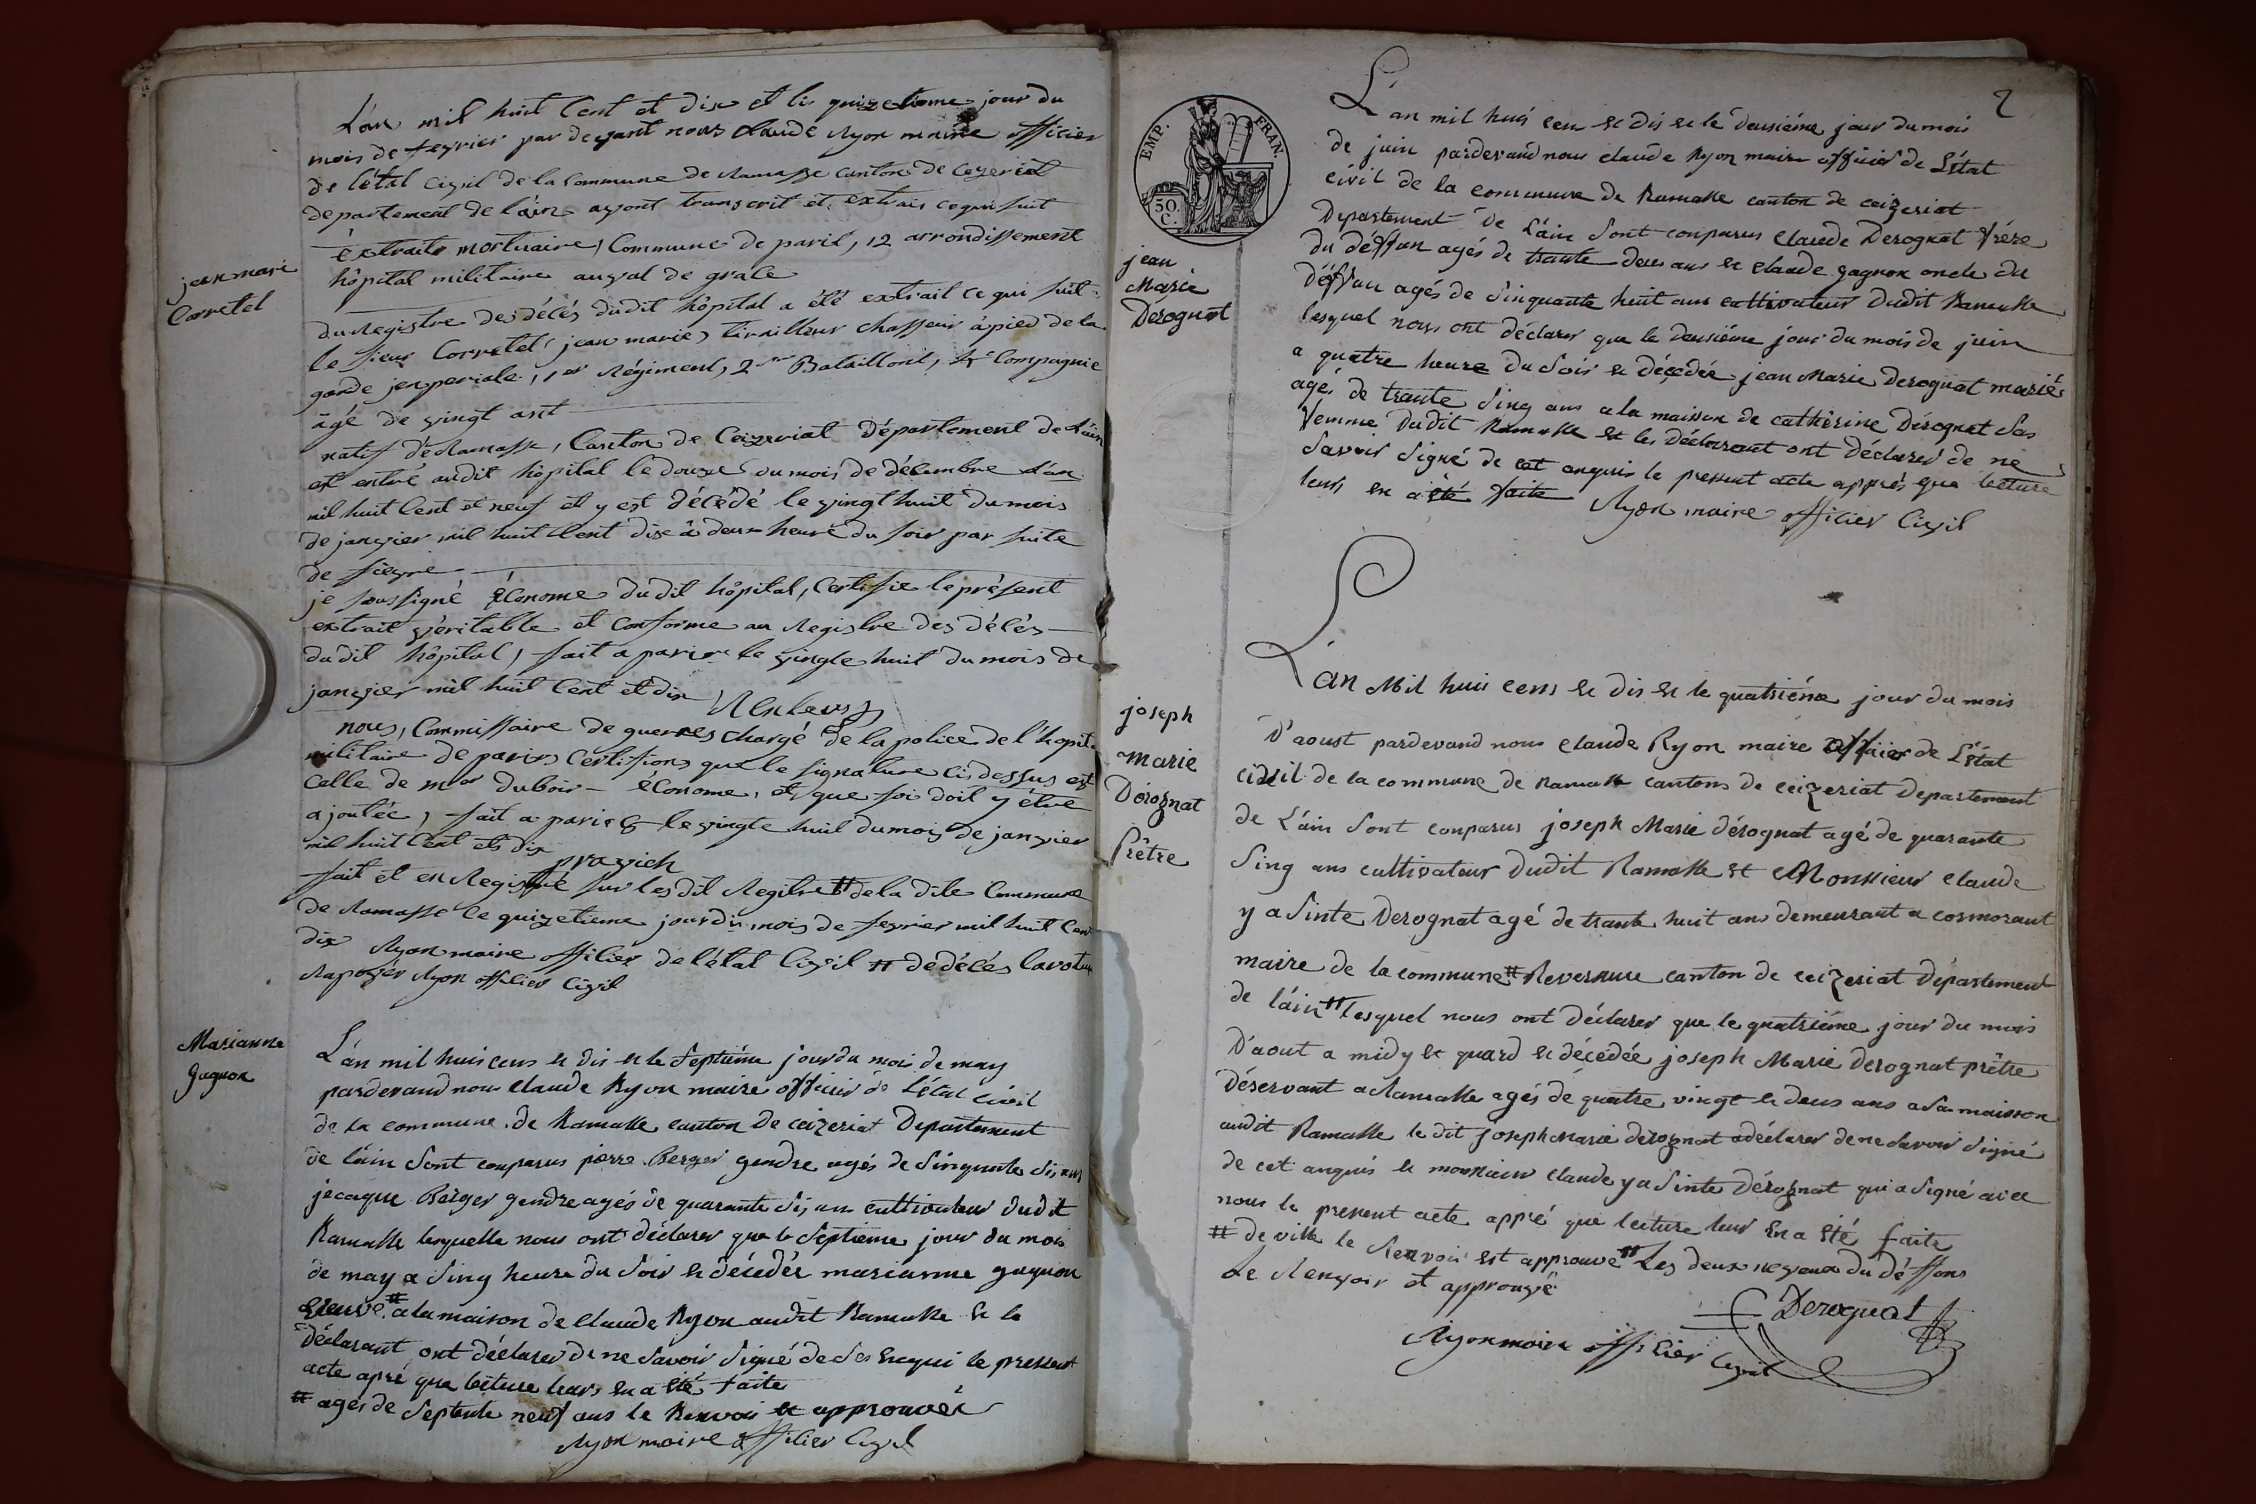 jean mari
Corretel
L'an mil huit Cent et dix et le quizetieme jour du
mois de fevrier par devant nous Claude Ryon maire officier
de l'état Civil de la Commune de Ramasse canton de Ceyzeriat
departement de l'ain ayont transcrit et extrais ce qui suit
éxtraite mortuaire, Commune de paris, 12 arrondissement
hôpital militaire au val de grace
du Registre des décés dudit hôpital a été extrait ce qui suit
le sieur Corretel jean marie, tirailleur chasseur àpied de la
garde jenperiale, 1er Régiment, 2me Bataillont, 4e Compagnie
âgé de vingt ant
natif déRamasse, Canton de Ceizeriat département de l'ain
est entré audit hôpital le douze du mois de décembre l'an
mil huit Cent et neuf et y est décédé le vingt huit du mois
de janvier mil huit Cent dix à deux heure du soir par suite
de fievre
je soussigné économe du dit hôpital, Certifie le présent
extrait véritable et Conforme au Registre des décés
dudit hôpital, fait a paris le vingte huit du mois de
janvier mil huit Cent et dix
nous, Commissaire de guerres chargé de la police de l'hopit
militaire de paris Certifions que le signature ci dessus est
Celle de mor dubois - économe, et que foi doit y être
ajoutée, fait a paris le vingte huit du mois de janvier
mil huit Cent et dix pravich
fait et en Registré sur les dit Regitre # de la dite Commune
de Ramasse le quizetieme jour du mois de fevrier mil huit Cent
dix Ryon maire officier de l'état Civil # de décés
Ryon officier Civil
Marianne
gagnon
L'an mil huis cens et dis et le Septiéme jour du moi de may
pardevand nous Claude Ryon maire officier de L'état civil
de la commune de Ramasse canton de ceizeriat Departement
de l'ain Sont conparus pierre Berger gendre agés de Sinquante Sis ans
jecaque Berger gendre agés de quarante Sis ans cultivateur dudit
Ramasse lesquelle nous ont déclarer que le Septieme jour du mois
de may a Sinq heure du Soir et décédée marianne gagnon
veuve # a la maison de Claude Ryon audit Ramasse et le
déclarant ont déclarer de ne Savoir Signé de Ses enequi le pressent
acte apré que lecture leurs en a été faite
# ages de Septente neuf ans le Renvoi et approuvér
Ryon maire officier Civil
2
EMP. FRAN.
50 C.
jean
Marie
Dérognat
L'an mil huis cens et dis et le deusiéme jour du mois
de juin pardevand nous Claude Ryon maire officier de L'état
civil de la commune de Ramasse canton de ceizeriat
Departement de L'ain Sont conparus Claude Derognat frére
du déffun agés de trante deus ans et Claude gagnon oncle du
déffun agés de Sinquante huit ans cultivateur dudit Ramasse
lesquel nous ont déclarer que le deusiéme jour du mois de juin
a quatre heure du Soir et décédée jean Marie Derognat marié
agés de trante Sinq ans a la maison de cathérine Dérognat Sas
femme dudit Ramasse et les déclarant ont déclarer de ne
Savoir Signé de cet anquis le pressent acte apprés que lecture
leurs en a été faite Ryon maire officier Civil
joseph
marie
Dérognat
Prêtre
L'an Mil huis cens et dis et le quatriéme jour du mois
D'aoust pardevand nous Claude Ryon maire officier de L'état
civil de la commune de Ramasse cantons de ceizeriat Departement
de L'ain Sont conparus joseph Marie dérognat agé de quarante
Sinq ans cultivateur dudit Ramasse et Monsieur Claude
y a Sinte Derognat agé de trante huit ans demeurant a cormorant
maire de la commune # Revernure canton de ceizeriat département
de l'ain # lesquel nous ont déclarer que le quatriéme jour du mois
D'aout a midy et quard et décédée joseph Marie Derognat prêtre
déservant a Ramasse agés de quatre vingt et deus ans a Sa maisson
audit Ramasse le dit joseph Marie dérognat a déclarer de ne Savoir Signé
de cet anquis et monsieur Claude y a Sinte Dérognat qui a Signé avec
nous le pressent acte appré que lecture leur en a été faite
# de ville le Renvoi est approuvé # Les deux neveux du déffons
Le Renvoir et approuvé
Derognat
Ryon maire officier Civil